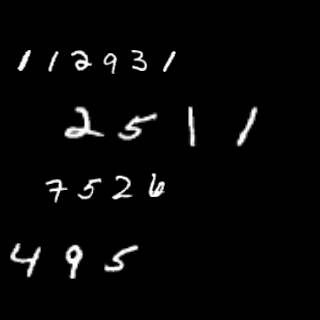 112931
2511
7526
495